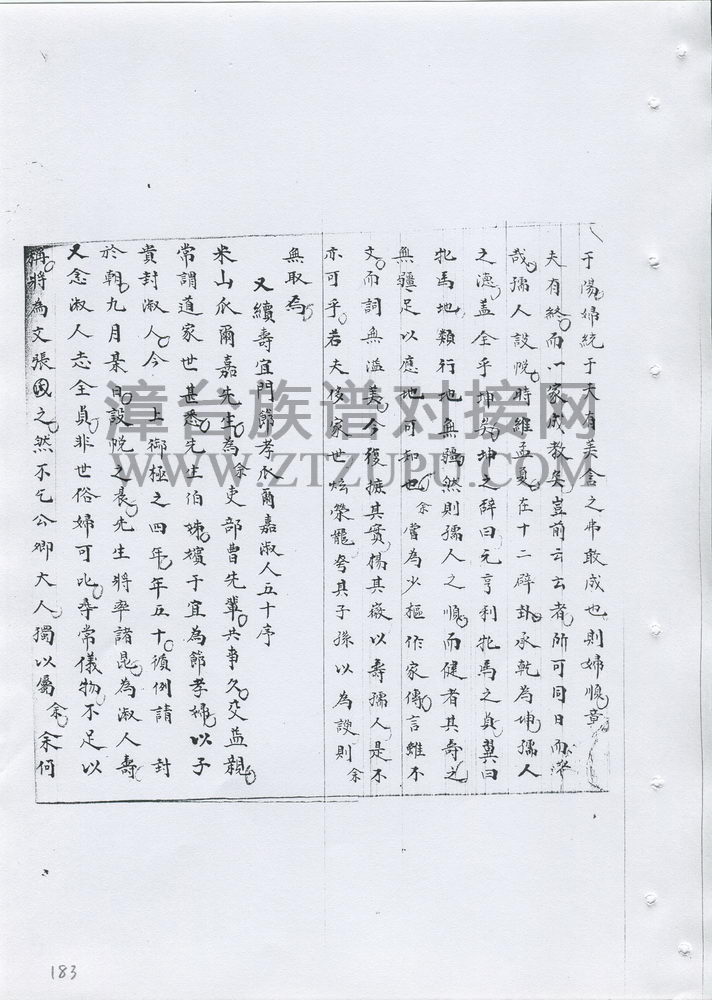 于陽婦統于夫有美含之弗敢成也則婦順章
夫有終而一家成教矣豈前云云者所可同日而
哉孺人設帨時維孟夏在十二辟卦承乾為坤孺人
之德蓋全乎坤矣坤之辭曰元亨利牝馬之貞翼曰
牝馬地類行地無疆然則孺人之順而健者其壽之
無疆足以應地可知也余嘗為少樞作家傳言雖不
文而詞無溢美今復摭其實揚其嶶以壽孺人是不
亦可乎若夫侈家世炫榮寵夸其子孫以為諛則余
無取焉
又續壽宜門節孝爾嘉淑人五十序
米山爾嘉先生為余吏部曹先輩共事久交益親
常謂道家世甚悉先生伯姊嬪于宜為節孝婦以子
貴封淑人今上御極之四年年五十循例請封
於朝九月某日設帨之長先生將率諸昆為淑人壽
又念淑人志全貞非世俗婦可比尋常儀物不足以
稱將為文張國之然不乞公卿大人獨以屬余余何
漳台族谱对接网
WWW.ZTZUPU.COM
183